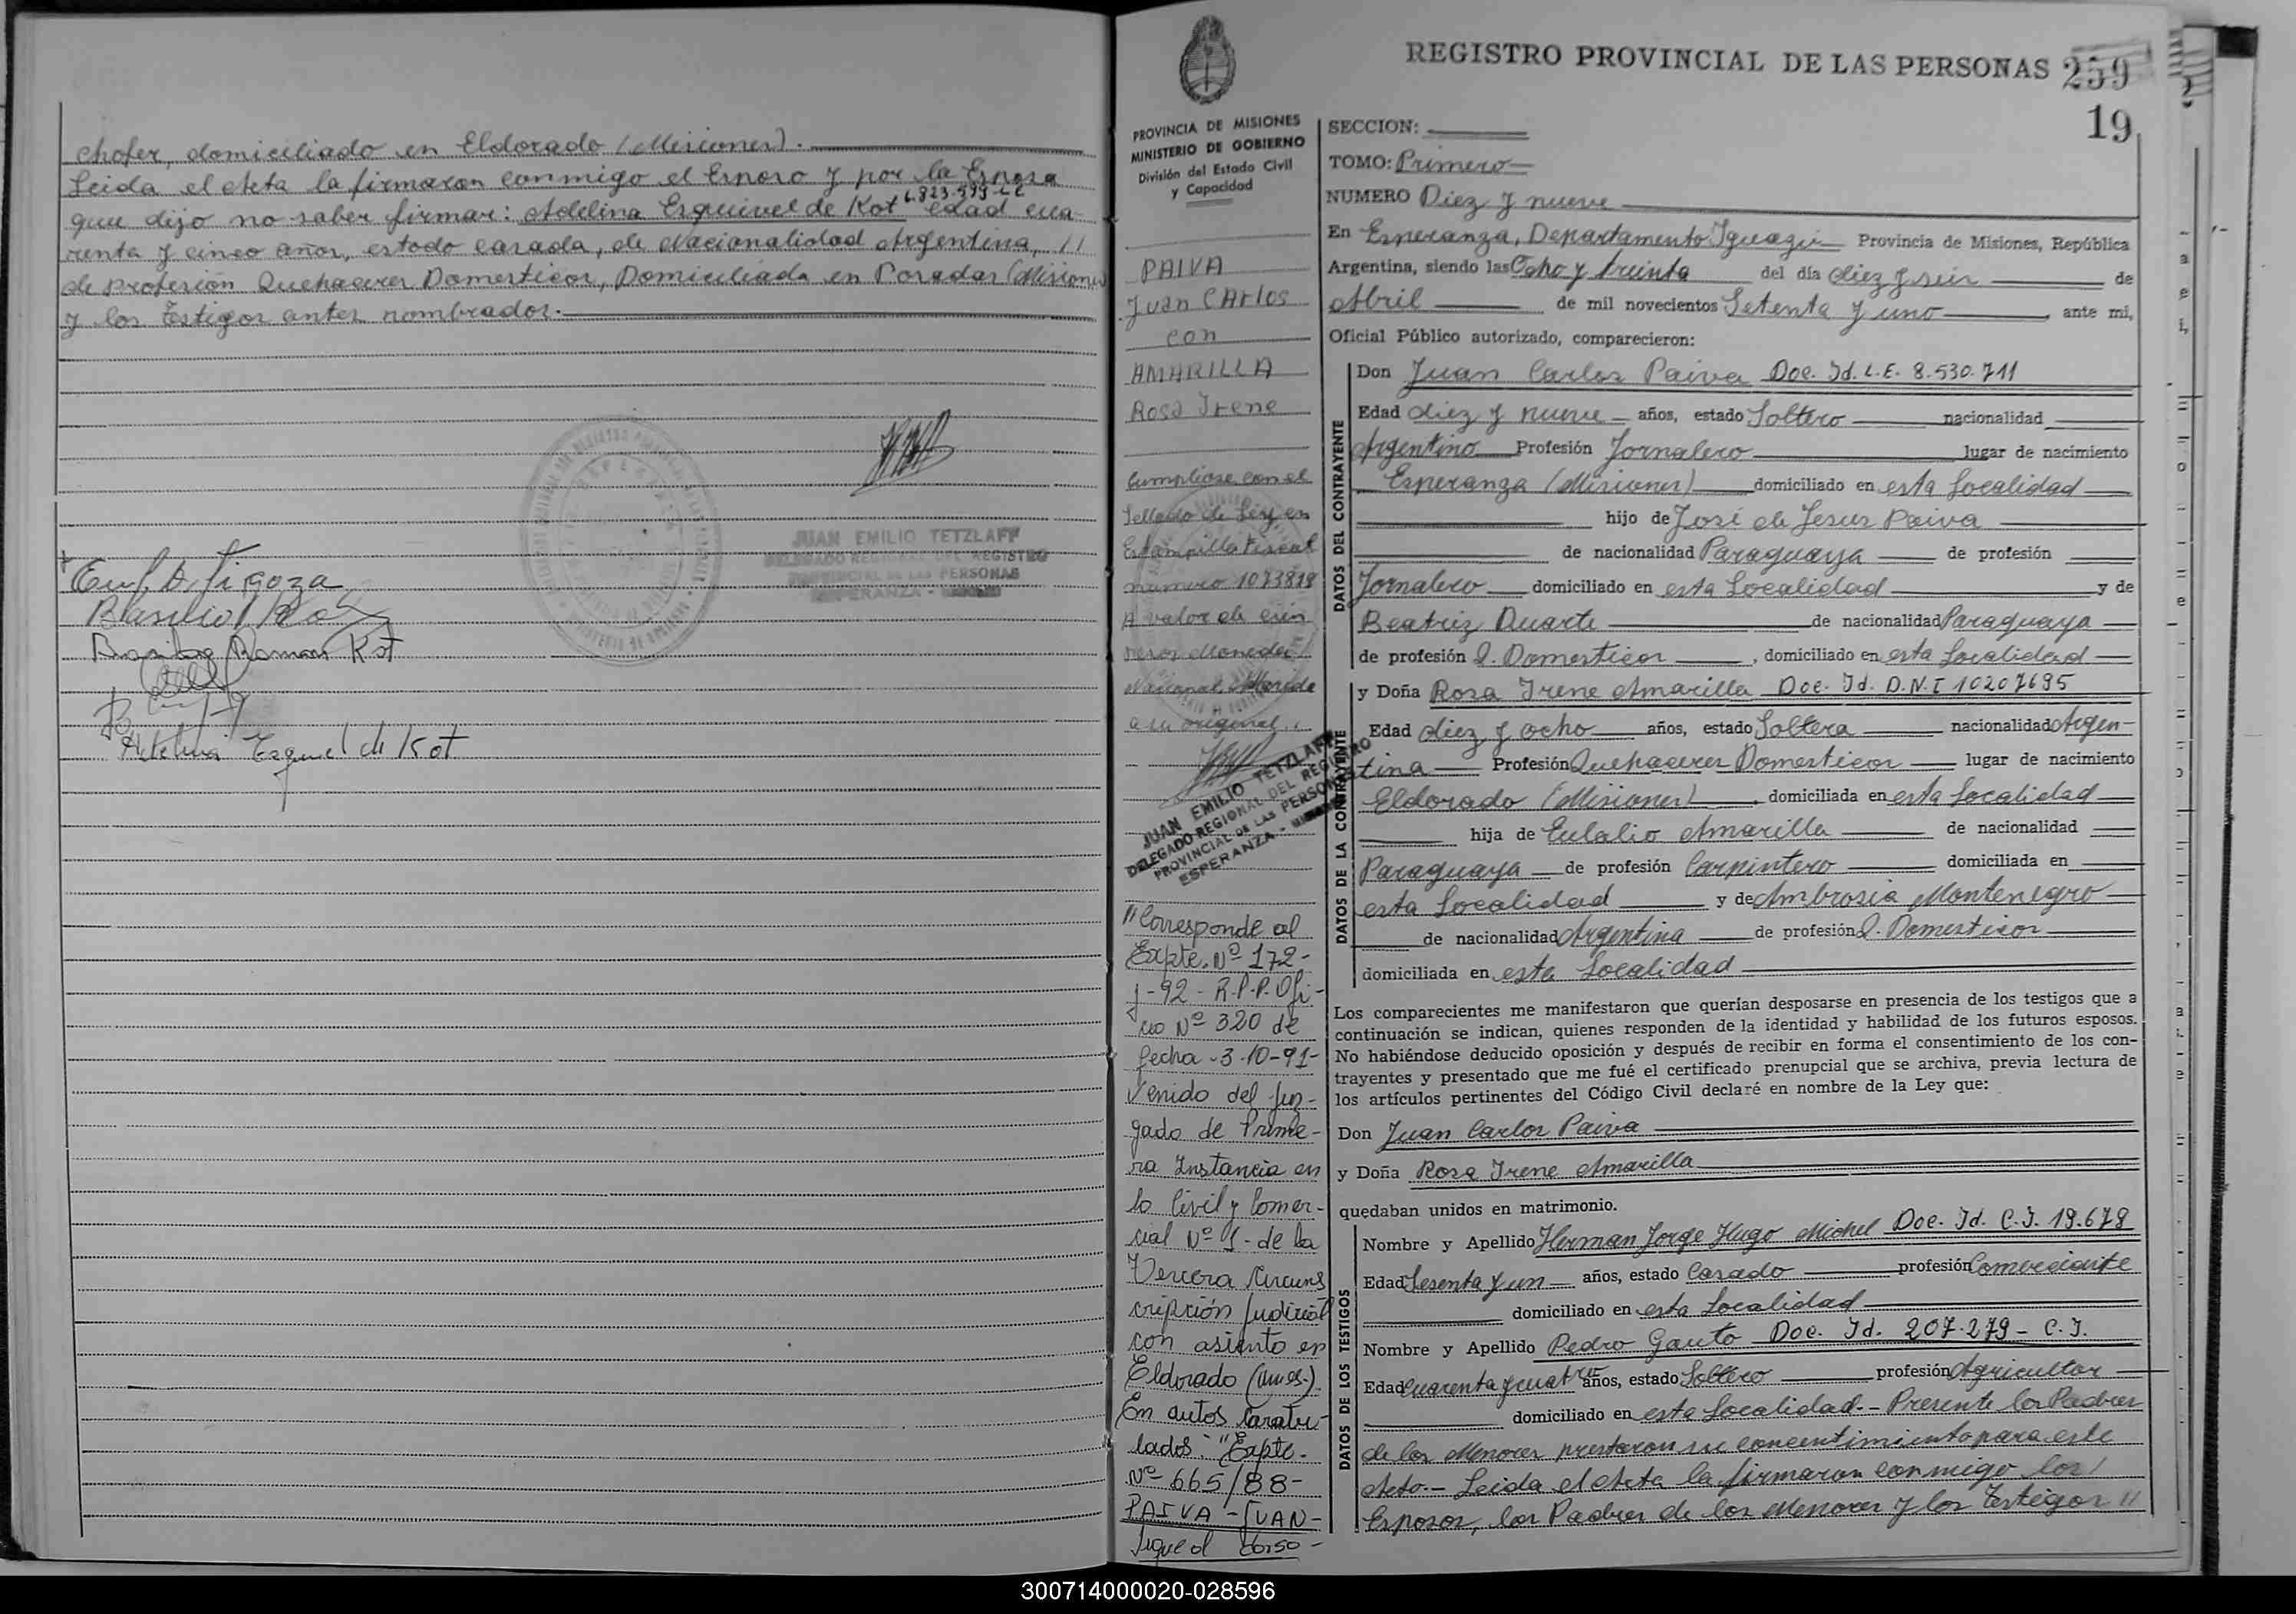 chofer, domiciliado en Eldorado (Misiones).
Leida el Acta la firmaron conmigo el Esposo y por la Esposa
6.823.599-LC
que dijo no saber firmar: Adelina Esquivel de Kot edad cua-
renta y cinco años, estado casada, de Nacionalidad Argentina, //
de profesión Quehaceres Domesticos, Domiciliada en Posadas (Misiones)
y los Testigos antes nombrados.
JUAN EMILIO TETZLAFF
DELEGADO REGIONAL DEL REGISTRO
PROVINCIAL DE LAS PERSONAS
ESPERANZA -
Roman Kot
Adelina Esquivel de Kot
REGISTRO PROVINCIAL DE LAS PERSONAS 259
19
PROVINCIA DE MISIONES
MINISTERIO DE GOBIERNO
División del Estado Civil
y Capacidad
PAIVA
Juan CArlos
con
AMARILLA
Rosa Irene
Cumpliose con el
Sellado de Ley en
Estampilla Fiscal
número 1073818
A valor de cien
pesos Moneda
Nacional
a su original
JUAN EMILIO TETZLAFF
DELEGADO REGIONAL DEL REGISTRO
PROVINCIAL DE LAS PERSONAS
ESPERANZA -
"Corresponde al
Expte. Nº 172-
J-92- R.P.P. Ofi-
cio Nº 320 de
fecha -3-10-91-
Venido del Juz-
gado de Prime-
ra Instancia en
lo Civil y Comer-
cial Nº 1- de la
Tercera Circuns
cripción Judicial
con asiento en
Eldorado (Mnes.)
En autos Caratu-
lados: "Expte.
Nº 665/88-
PAIVA - JUAN-
Sigue al dorso-
SECCION:
TOMO: Primero
NUMERO Diez y nueve
En Esperanza, Departamento Iguazú Provincia de Misiones, República
Argentina, siendo las Ocho y treinta del día diez y seis de
Abril de mil novecientos Setenta y uno, ante mi,
Oficial Público autorizado, comparecieron:
DATOS DEL CONTRAYENTE
Don Juan Carlos Paiva Doc. Id. L.E. 8.530.711
Edad diez y nueve años, estado Soltero nacionalidad
Argentino Profesión Jornalero lugar de nacimiento
Esperanza (Misiones) domiciliado en esta Localidad
hijo de José de Jesus Paiva
de nacionalidad Paraguaya de profesión
Jornalero domiciliado en esta Localidad y de
Beatriz Duarte de nacionalidad Paraguaya
de profesión Q. Domesticos, domiciliado en esta Localidad
DATOS DE LA CONTRAYENTE
y Doña Rosa Irene Amarilla Doc. Id. D.N.I 10207695
Edad diez y ocho años, estado Soltera nacionalidad Argen-
tina Profesión Quehaceres Domesticos lugar de nacimiento
Eldorado (Misiones), domiciliada en esta Localidad
hija de Eulalio Amarilla de nacionalidad
Paraguaya de profesión Carpintero domiciliada en
esta Localidad y de Ambrosia Montenegro
de nacionalidad Argentina de profesión Q. Domesticos
domiciliada en esta Localidad
Los comparecientes me manifestaron que querían desposarse en presencia de los testigos que a
continuación se indican, quienes responden de la identidad y habilidad de los futuros esposos.
No habiéndose deducido oposición y después de recibir en forma el consentimiento de los con-
trayentes y presentado que me fué el certificado prenupcial que se archiva, previa lectura de
los artículos pertinentes del Código Civil declaré en nombre de la Ley que:
Don Juan Carlos Paiva
y Doña Rosa Irene Amarilla
quedaban unidos en matrimonio.
DATOS DE LOS TESTIGOS
Nombre y Apellido Herman Jorge Hugo Michel Doc. Id. C.I. 19.678
Edad Sesenta y un años, estado Casado profesión Comerciante
domiciliado en esta Localidad
Nombre y Apellido Pedro Gauto Doc. Id. 207.279 - C.I.
Edad cuarenta y cuatro años, estado Soltero profesión Agricultor
domiciliado en esta Localidad.- Presente los Padres
de los Menores prestaron su concentimiento para este
Acto.- Leida el Acta la firmaron conmigo los /
Esposos, los Padres de los Menores y los Testigos //
300714000020-028596